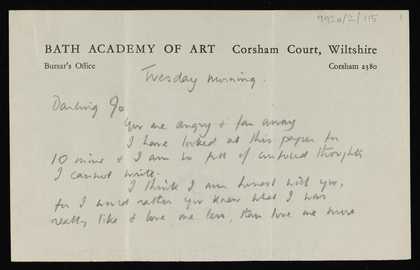 9920/2/115
BATH ACADEMY OF ART Corsham Court, Wiltshire
Bursar's Office Corsham 2380
Tuesday morning.
Darling Jo
You are angry & far away
I have looked at this paper for
10 mins & I am so full of confused thoughts
I cannot write.
I think I am honest with you,
for I would rather you knew what I was
really like & love me less, than love me more